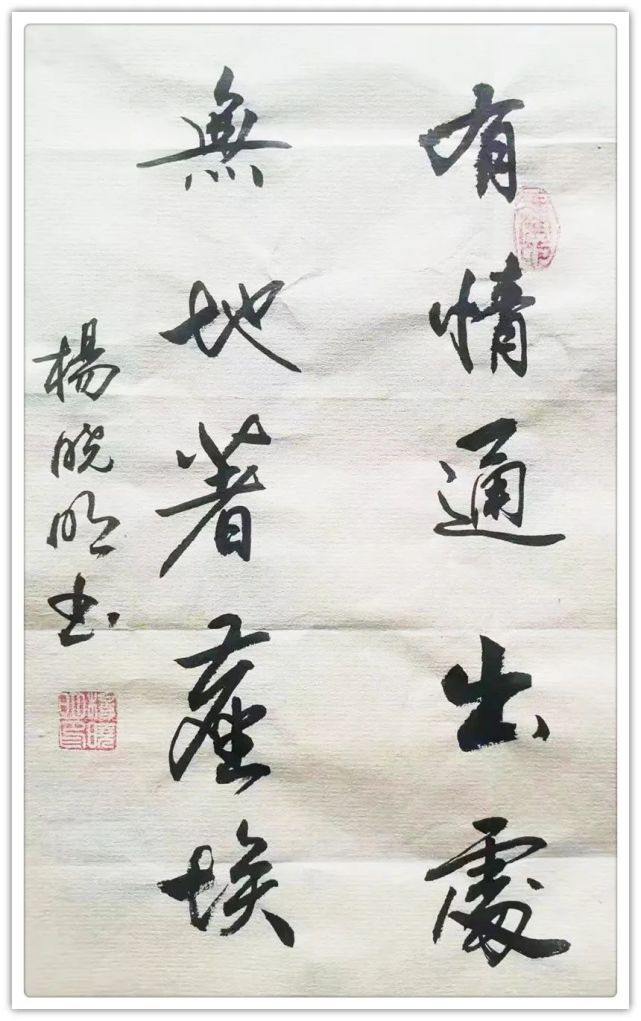 有情通出處
無地著塵埃
楊晓明书